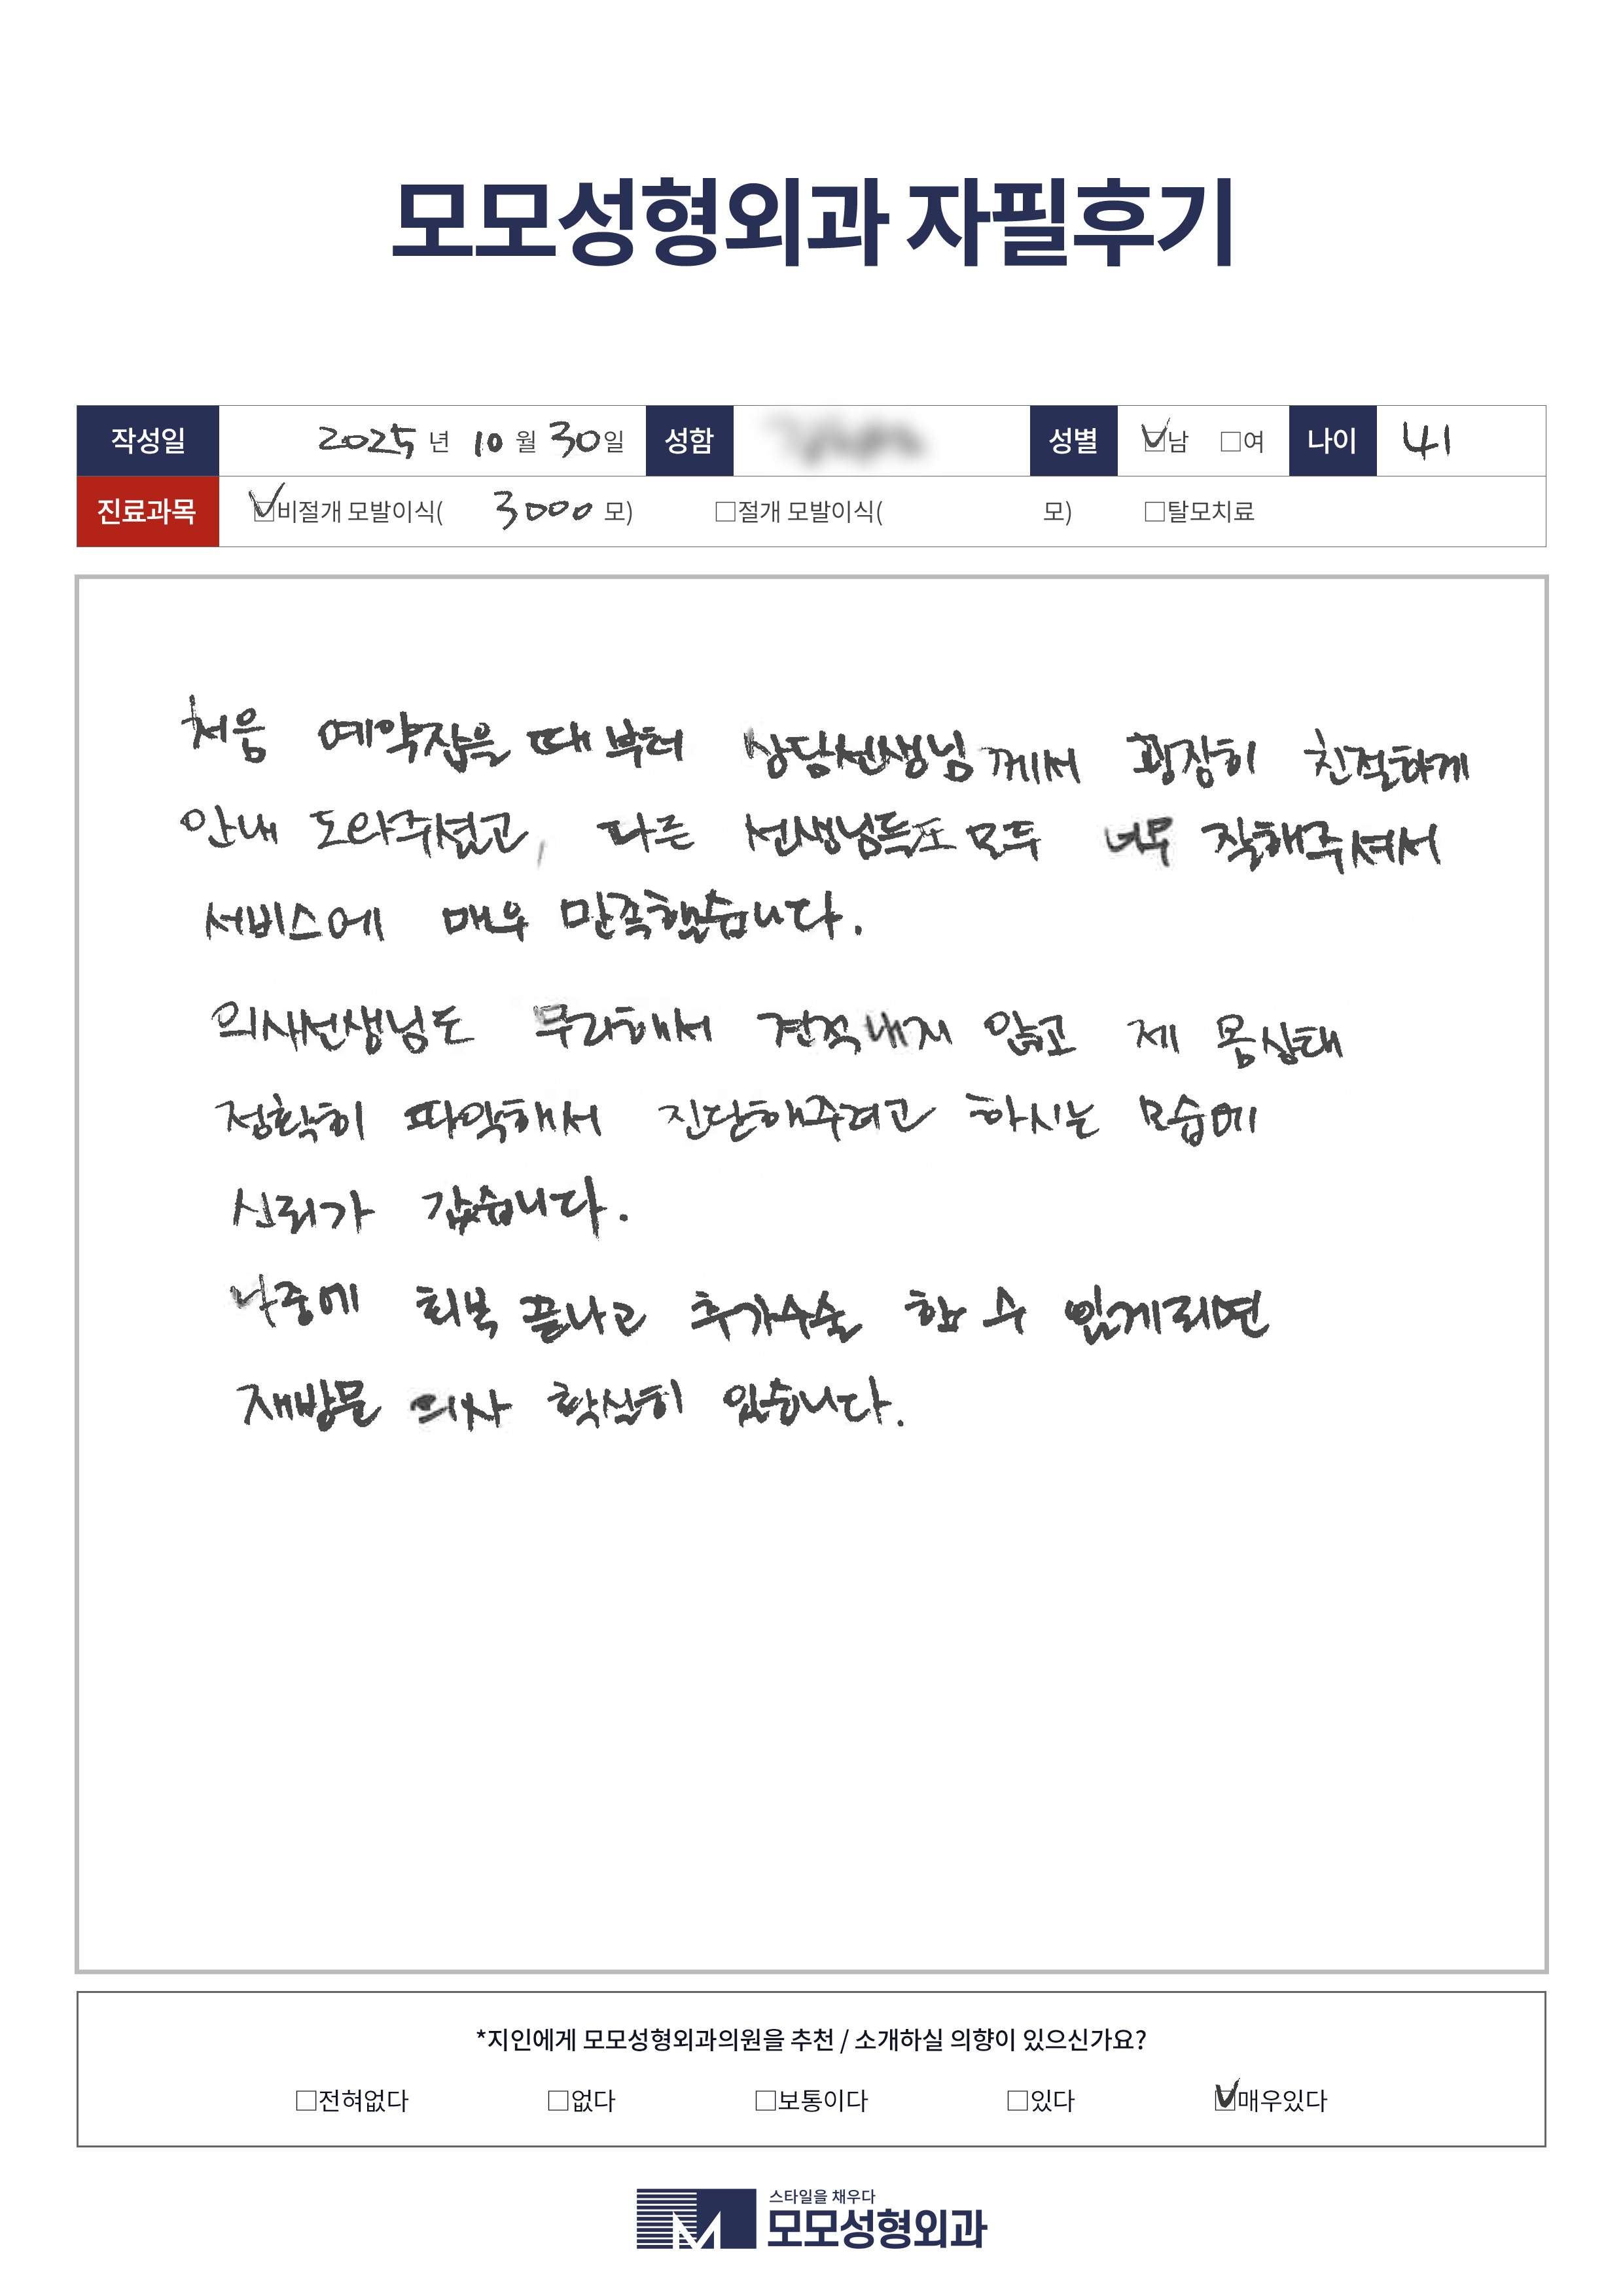 모모성형외과 자필후기
작성일 2025 년 10 월 30 일 성함 성별 ☑남 □여 나이 41
진료과목 ☑비절개 모발이식( 3000 모) □절개 모발이식( 모) □탈모치료
처음 예약잡을 때부터 상담선생님께서 굉장히 친절하게
안내 도와주셨고, 다른 선생님들도 모두 너무 잘해주셔서
서비스에 매우 만족했습니다.
의사선생님도 무리해서 견적내지 않고 제 몸상태
정확히 파악해서 진단해주려고 하시는 모습에
신뢰가 갔습니다.
나중에 회복 끝나고 추가수술 할 수 있게되면
재방문 의사 확실히 있습니다.
*지인에게 모모성형외과의원을 추천 / 소개하실 의향이 있으신가요?
□전혀없다 □없다 □보통이다 □있다 ☑매우있다
스타일을 채우다
모모성형외과